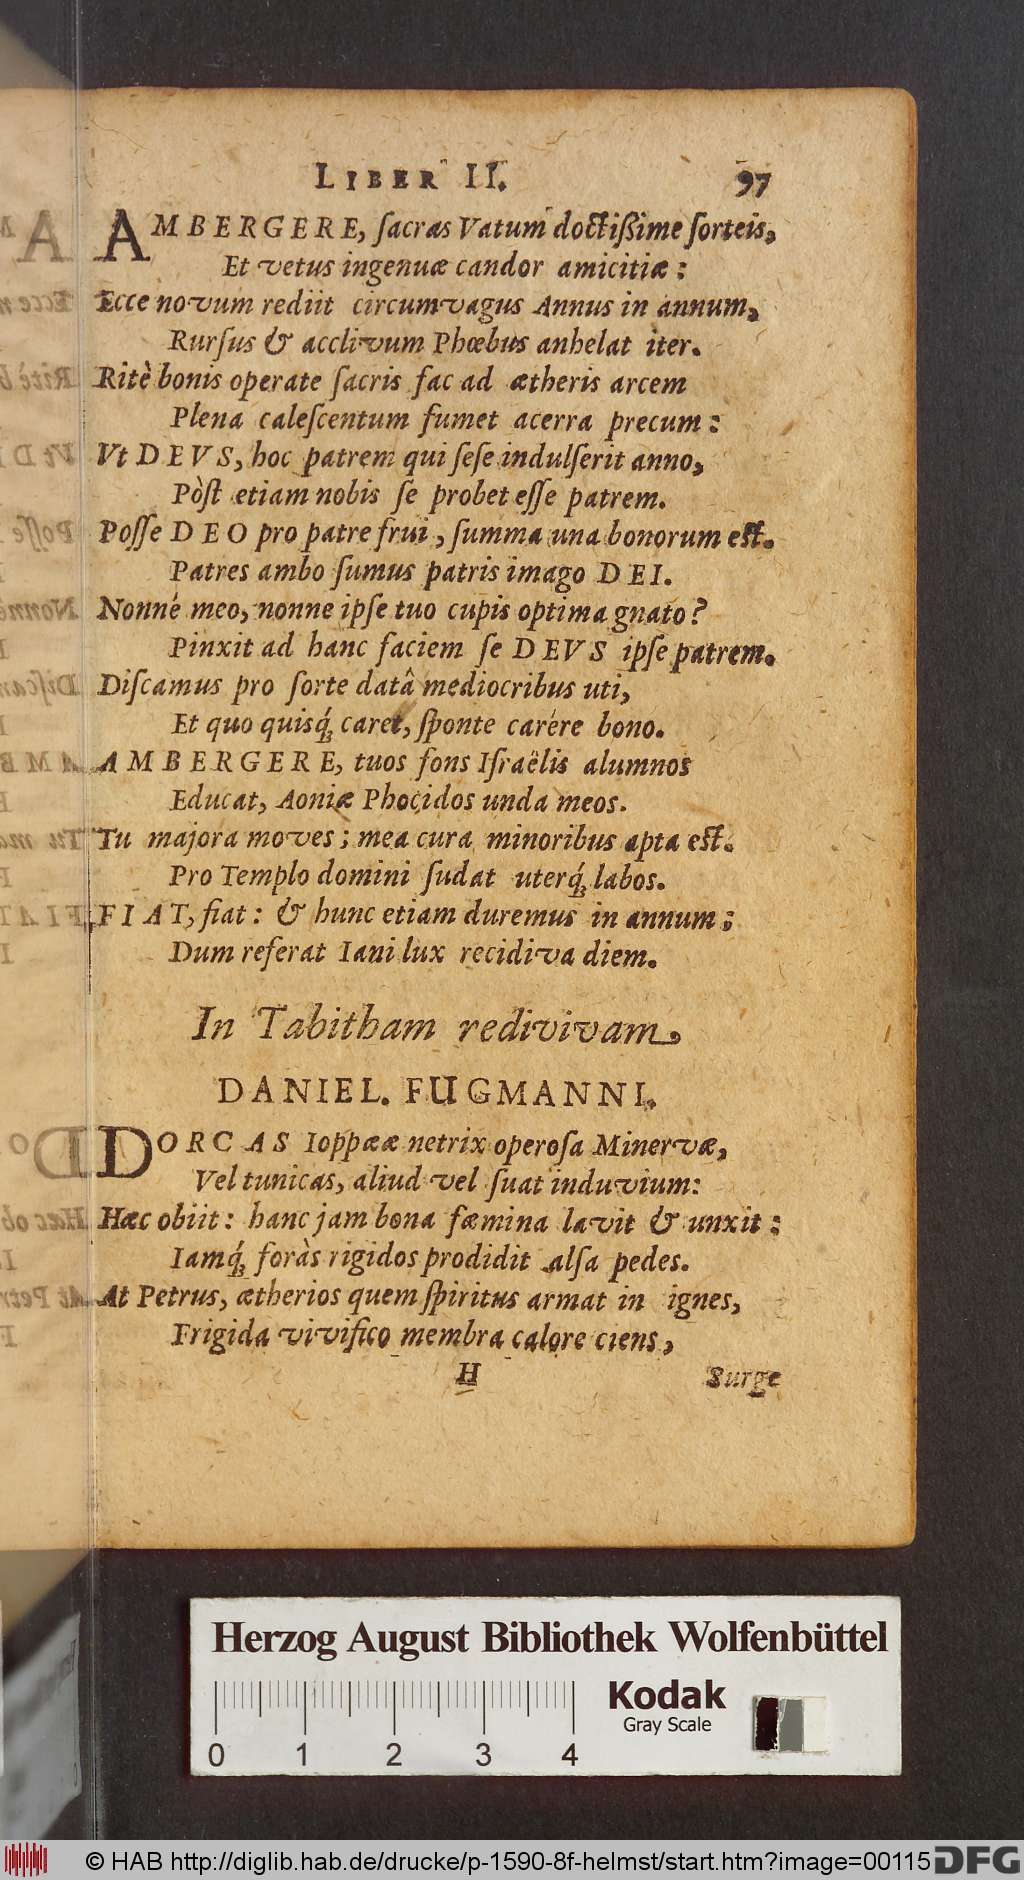 LIBER II. 97
AMBERGERE, ſacras Vatum doctißime ſorteis,
Et vetus ingenuæ candor amicitiæ:
Ecce novum rediit circumvagus Annus in annum,
Rurſus & acclivum Phœbus anhelat iter.
Ritè bonis operate ſacris fac ad ætheris arcem
Plena caleſcentum fumet acerra precum:
Vt DEVS, hoc patrem qui ſeſe indulſerit anno,
Pòſt etiam nobis ſe probet eſſe patrem.
Poſſe DEO pro patre frui, ſumma una bonorum eſt.
Patres ambo ſumus patris imago DEI.
Nonné meo, nonne ipſe tuo cupis optima gnato?
Pinxit ad hanc faciem ſe DEVS ipſe patrem.
Diſcamus pro ſorte datâ mediocribus uti,
Et quo quisq́; caret, ſponte carére bono.
AMBERGERE, tuos fons Iſraëlis alumnos
Educat, Aoniæ Phocidos unda meos.
Tu majora moves; mea cura minoribus apta eſt.
Pro Templo domini ſudat uterq́; labos.
FIAT, fiat: & hunc etiam duremus in annum;
Dum referat Iani lux recidiva diem.
In Tabitham redivivam,
DANIEL. FUGMANNI.
DORCAS Ioppææ netrix operoſa Minervæ,
Vel tunicas, aliud vel ſuat induvium:
Hæc obiit: hanc jam bona fæmina lavit & unxit:
Iamq́; foràs rigidos prodidit alſa pedes.
At Petrus, ætherios quem ſpiritus armat in ignes,
Frigida vivifico membra calore ciens,
H Surge
Herzog August Bibliothek Wolfenbüttel
Kodak
Gray Scale
0 1 2 3 4
© HAB http://diglib.hab.de/drucke/p-1590-8f-helmst/start.htm?image=00115 DFG